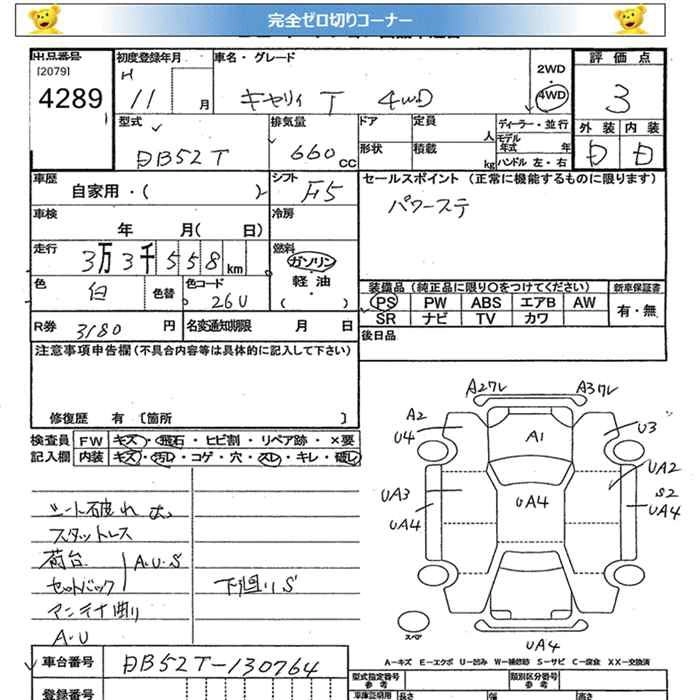 完全ゼロ切りコーナー
出品番号 初度登録年月 車名・グレード 2WD・4WD 評価点
[2079]
4289 H 11 月 キャリィ T 4WD 3
型式 排気量 ドア 定員 人 ディーラー・並行 外装 内装
DB52T 660 CC 形状 積載 kg モデル年式 年 ハンドル 左・右 D D
車歴 シフト セールスポイント (正常に機能するものに限ります)
自家用・( ) F5 パワーステ
車検 冷房
年 月( 日)
走行 燃料
3万3千558km ガソリン
軽油・( )
色 白 色替 色コード 26U
装備品(純正品に限り○をつけてください) 新車保証書
PS PW ABS エアB AW 有・無
SR ナビ TV カワ
R券 3180 円 名変通知期限 月 日 後日品
注意事項申告欄(不具合内容等は具体的に記入して下さい)
修復歴 有 [箇所 ]
検査員 FW キズ・飛石・ヒビ割・リペア跡・×要
記入欄 内装 キズ・汚レ・コゲ・穴・スレ・キレ・破レ
A2ワレ A3ワレ
A2 U4 A1 U3
UA3 UA4 UA4 UA2 S2 UA4
UA4
シート破れ 大
スタットレス
荷台 A・U・S
セットバック 下廻りS
アンテナ曲り
A・U
スペア
A-キズ E-エクボ U-凹み W-補修跡 S-サビ C-腐食 X-要交換 XX-交換済
車台番号 DB52T-130764
型式指定番号 参考 類別区分番号 参考
登録番号 車庫証明用 参考 長さ 幅 高さ